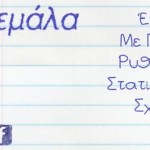 εμάλα
Με
Ρυθ
Στατι
Σχ